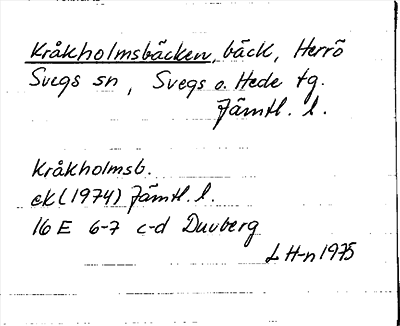 Kråkholmsbäcken, bäck, Herrö
Svegs sn, Svegs o. Hede tg.
Jämtl. l.
Kråkholmsb.
ek (1974) Jämtl. l.
16 E 6-7 c-d Duvberg
L H-n 1975